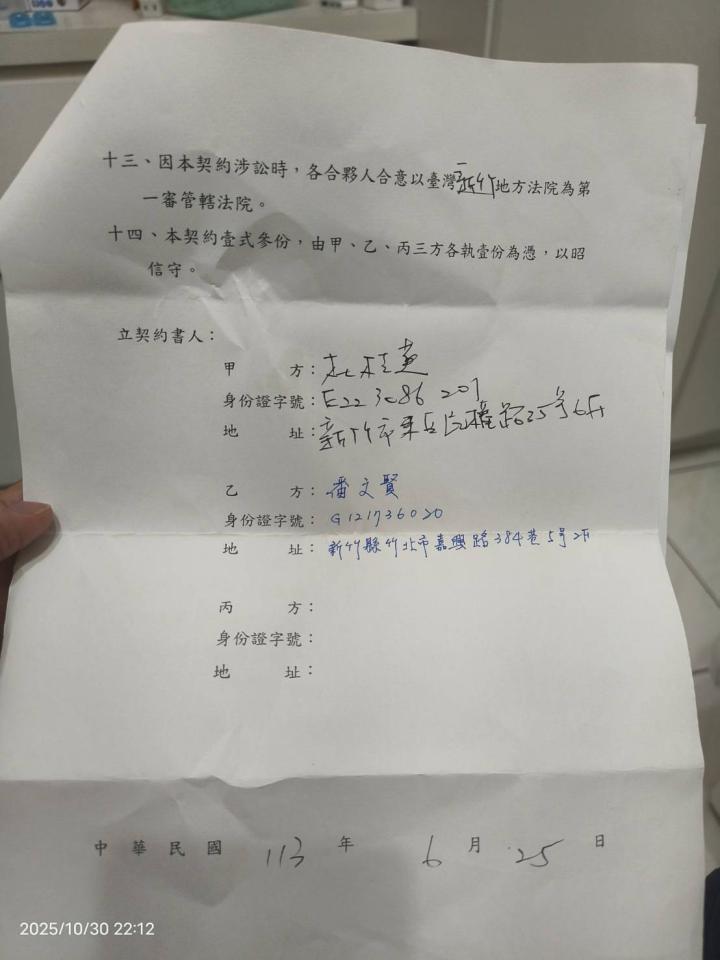 十三、因本契約涉訟時，各合夥人合意以臺灣新竹地方法院為第
一審管轄法院。
十四、本契約壹式參份，由甲、乙、丙三方各執壹份為憑，以昭
信守。
立契約書人：
甲　　　方：杜桂
身份證字號：E223086207
地　　　址：新竹市東區民權路35號6F
乙　　　方：潘文賢
身份證字號：G121736020
地　　　址：新竹縣竹北市嘉興路384巷5號2F
丙　　　方：
身份證字號：
地　　　址：
中華民國 113 年 6 月 25 日
2025/10/30 22:12